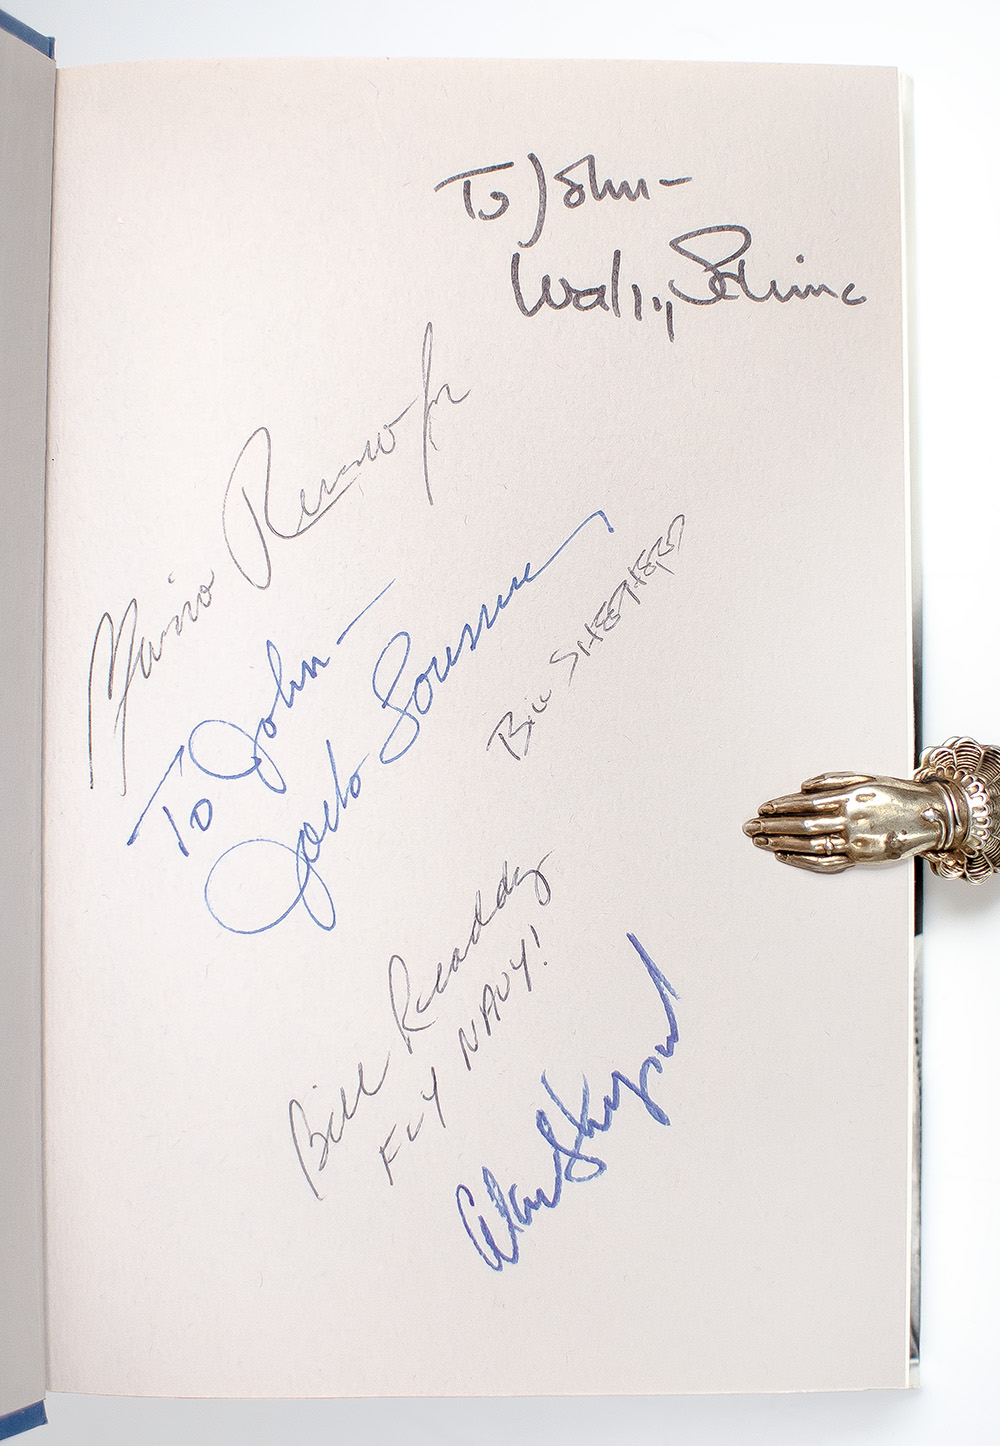 To John-
Wally Schirra
Mario Runco Jr
To John-
Jack Lousma
Bill SHEPHERD
Bill Readdy
FLY NAVY!
Alan Shepard